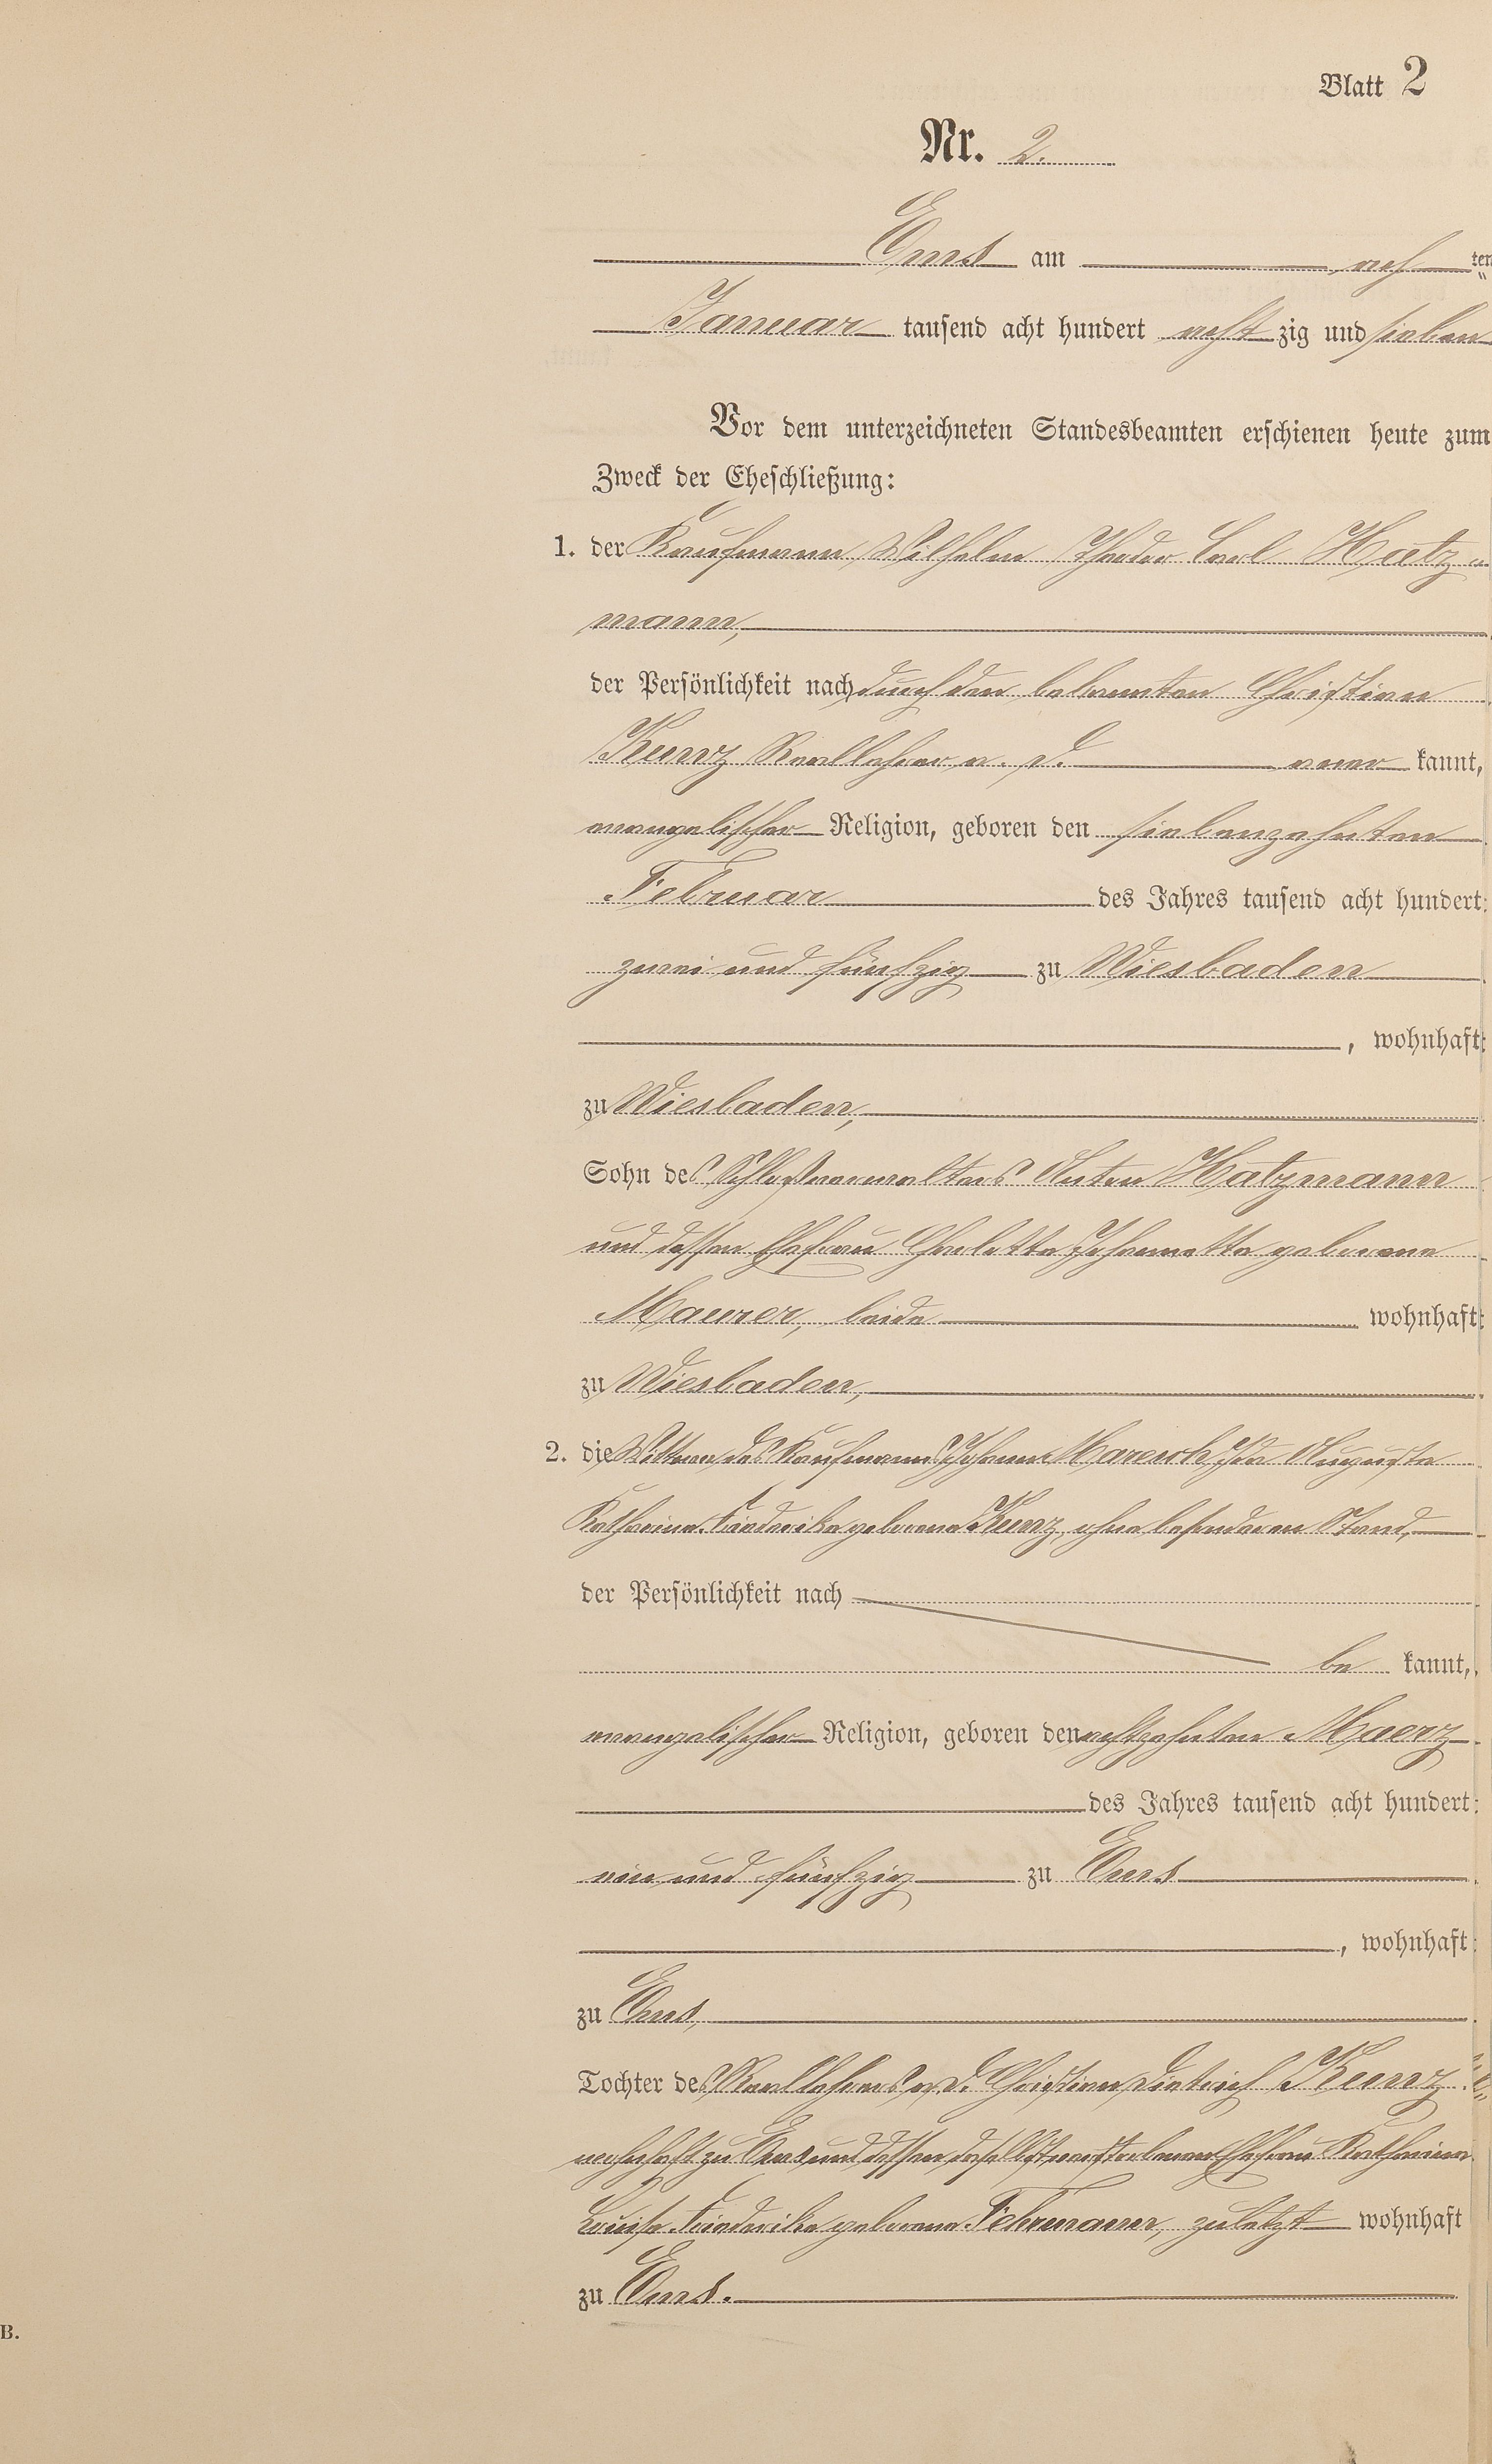 Blatt 2
Nr. 2.
Ems am ach ten
Januar tausend acht hundert acht zig und sieben
Vor dem unterzeichneten Standesbeamten erschienen heute zum
Zweck der Eheschließung:
1. der Kaufmann Wilhelm Theodor Carl Hatz-
mann,
der Persönlichkeit nach durch den bekannten Christian
Kunz Reallehrer a. D. aner kannt,
evangelischer Religion, geboren den siebenzehnten
Februar des Jahres tausend acht hundert
zwei und fünfzig zu Wiesbaden
, wohnhaft
zu Wiesbaden,
Sohn des Schloßverwalters Anton Hatzmann
und dessen Ehefrau Charlotte Johannette geborene
Maurer, beide wohnhaft
zu Wiesbaden,
2. die Wittwe des Kaufmanns Johann Maresch, Ida Auguste
Katharina Friederike geborene Kunz, ohne besonderen Stand,
der Persönlichkeit nach
be kannt,
evangelischer Religion, geboren den achtzehnten Maerz
des Jahres tausend acht hundert
ein und fünfzig zu Ems
, wohnhaft
zu Ems,
Tochter des Reallehrers a. D. Christian Dietrich Kunz
wohnhaft zu Ems und dessen daselbst verstorbenen Ehefrau Katharina
Louise Friederike geborene Fehrmann, zuletzt wohnhaft
zu Ems.
B.